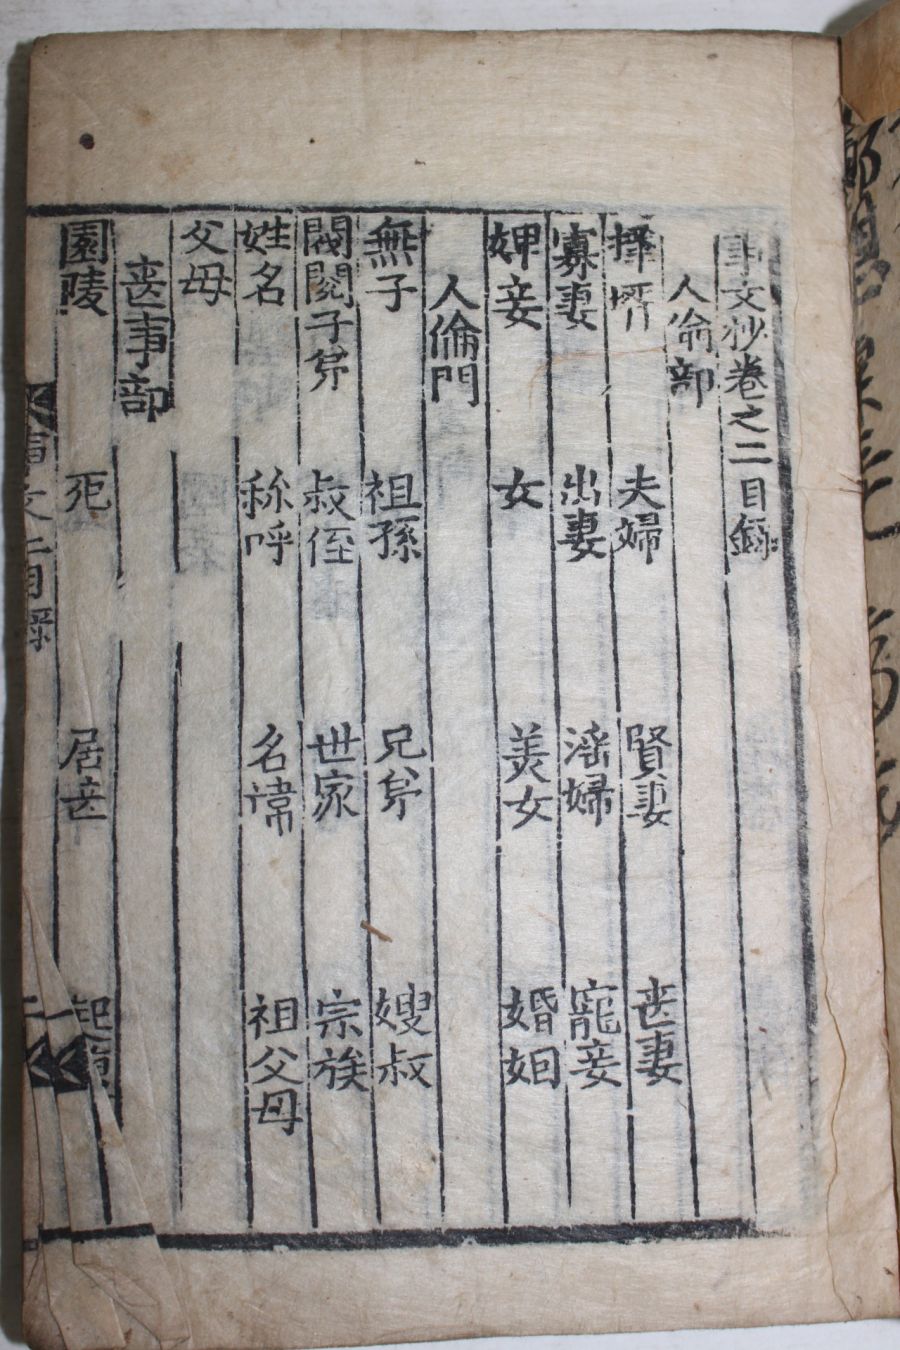 事文抄卷之二目録
人倫部
擇壻 夫婦 賢妻 丧妻
寡妻 出妻 淫婦 寵妾
婢妾 女 美女 婚姻
人倫門
無子 祖孫 兄弟 嫂叔
閥閱子弟 叔侄 世家 宗族
姓名 稱呼 名諱 祖父母
父母
丧事部
園陵 死 居丧 起復
事文二目録